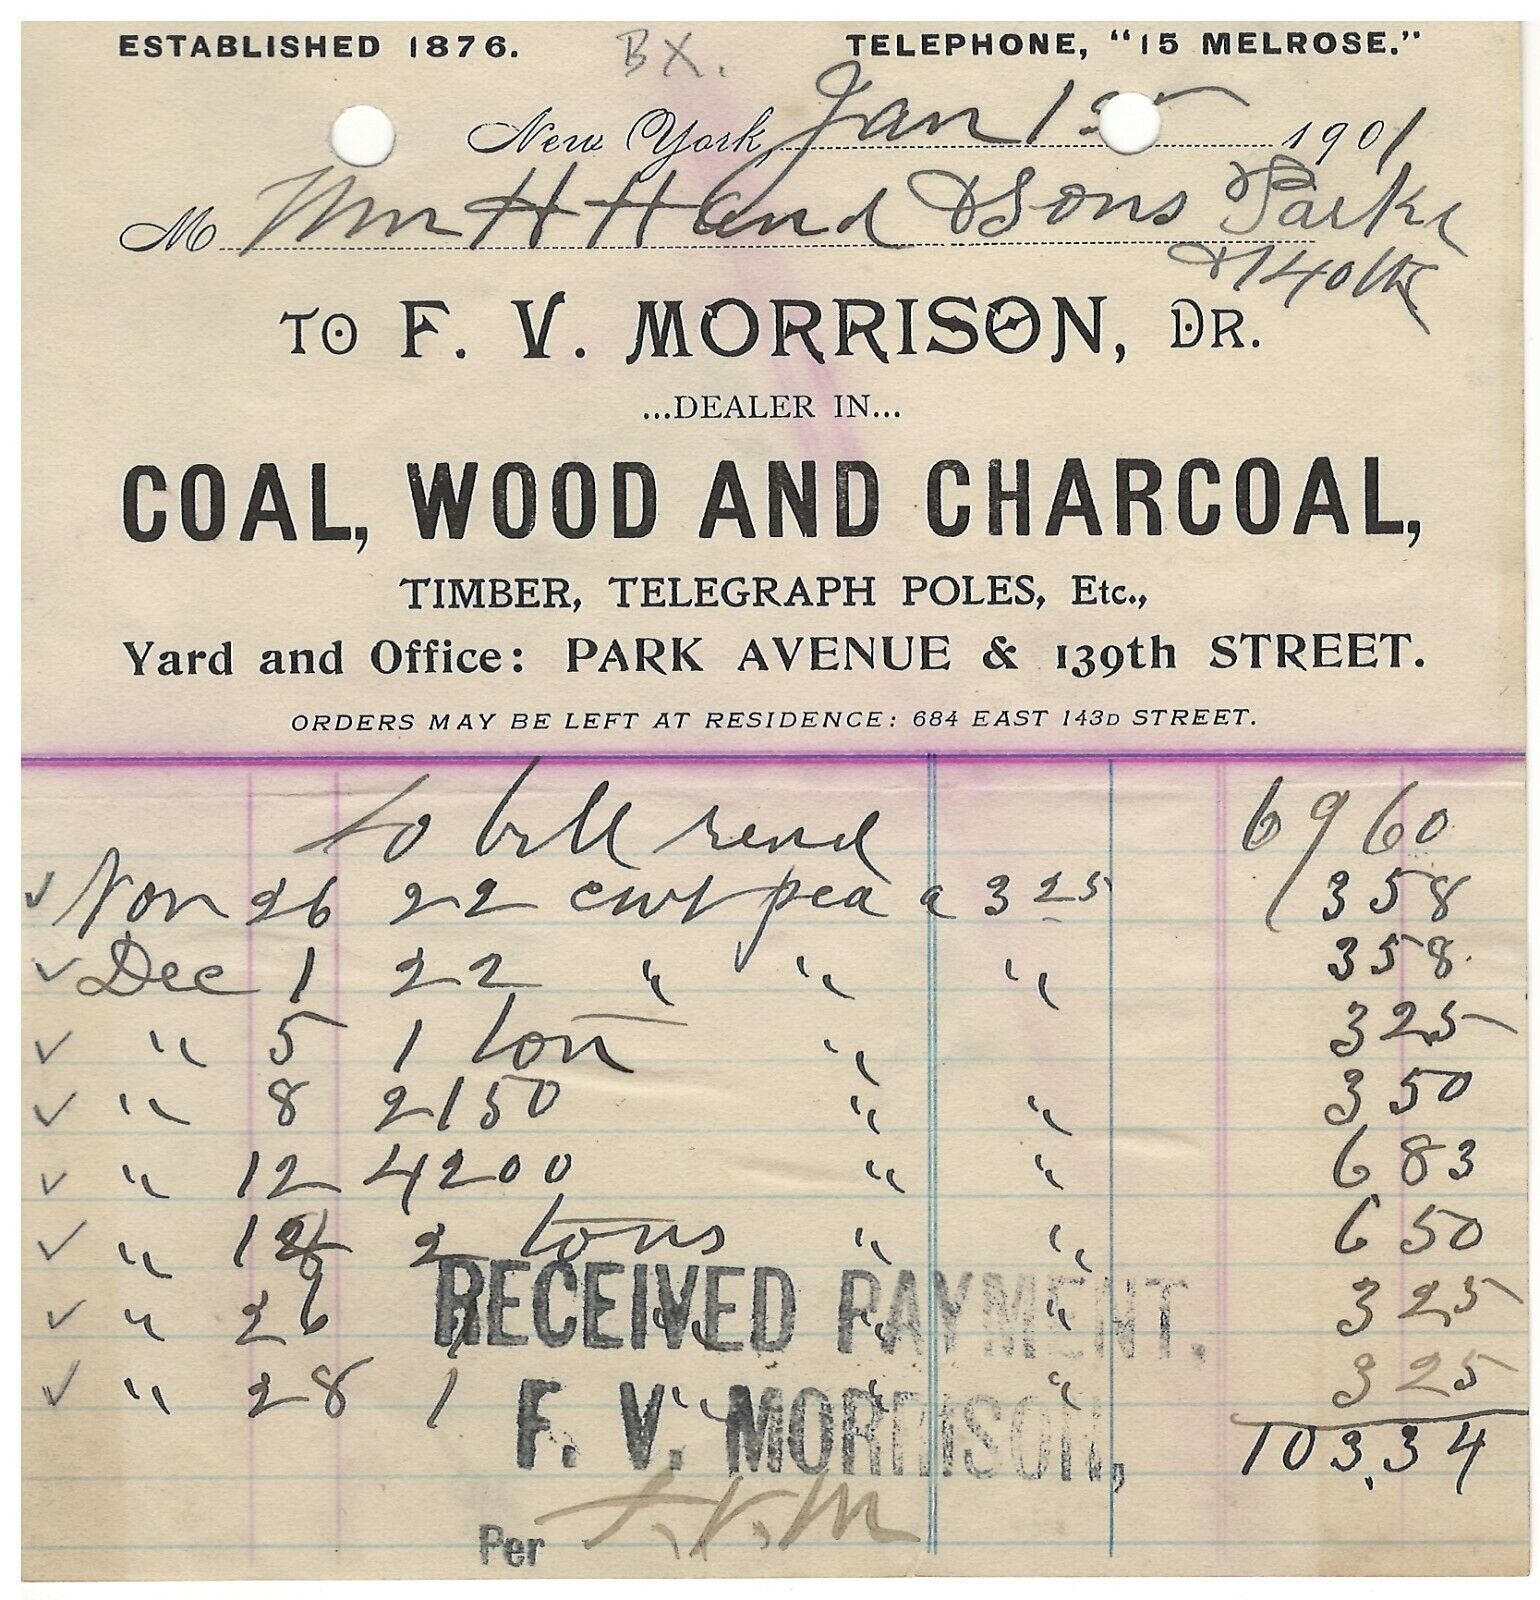 ESTABLISHED 1876. BX. TELEPHONE, "15 MELROSE."
New York, Jan 1st 1901
M Wm H Hand & Sons Park
& 140th
TO F. V. MORRISON, DR.
...DEALER IN...
COAL, WOOD AND CHARCOAL,
TIMBER, TELEGRAPH POLES, Etc.,
Yard and Office: PARK AVENUE & 139th STREET.
ORDERS MAY BE LEFT AT RESIDENCE: 684 EAST 143D STREET.
to bill rend 69 60
✓ Nov 26 22 cwt pea a 3 25 3 58
✓ Dec 1 22 " " " 3 58
✓ " 5 1 ton " 3 25
✓ " 8 2150 " " 3 50
✓ " 12 4200 " " 6 83
✓ " 2 tons " " 6 50
✓ " 26 1 " " " 3 25
✓ " 28 1 " " " 3 25
103.34
RECEIVED PAYMENT.
F. V. MORRISON,
Per F. V. M